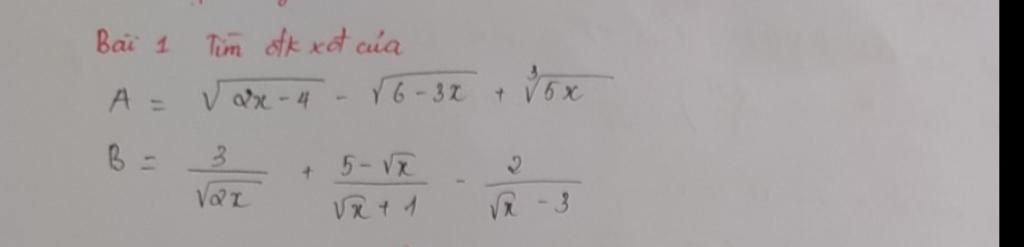 Bài 1 Tìm đk xđ của
A = √(2x - 4) - √(6 - 3x) + ∛(5x)
B = 3/√(2x) + (5 - √x)/(√x + 1) - 2/(√x - 3)